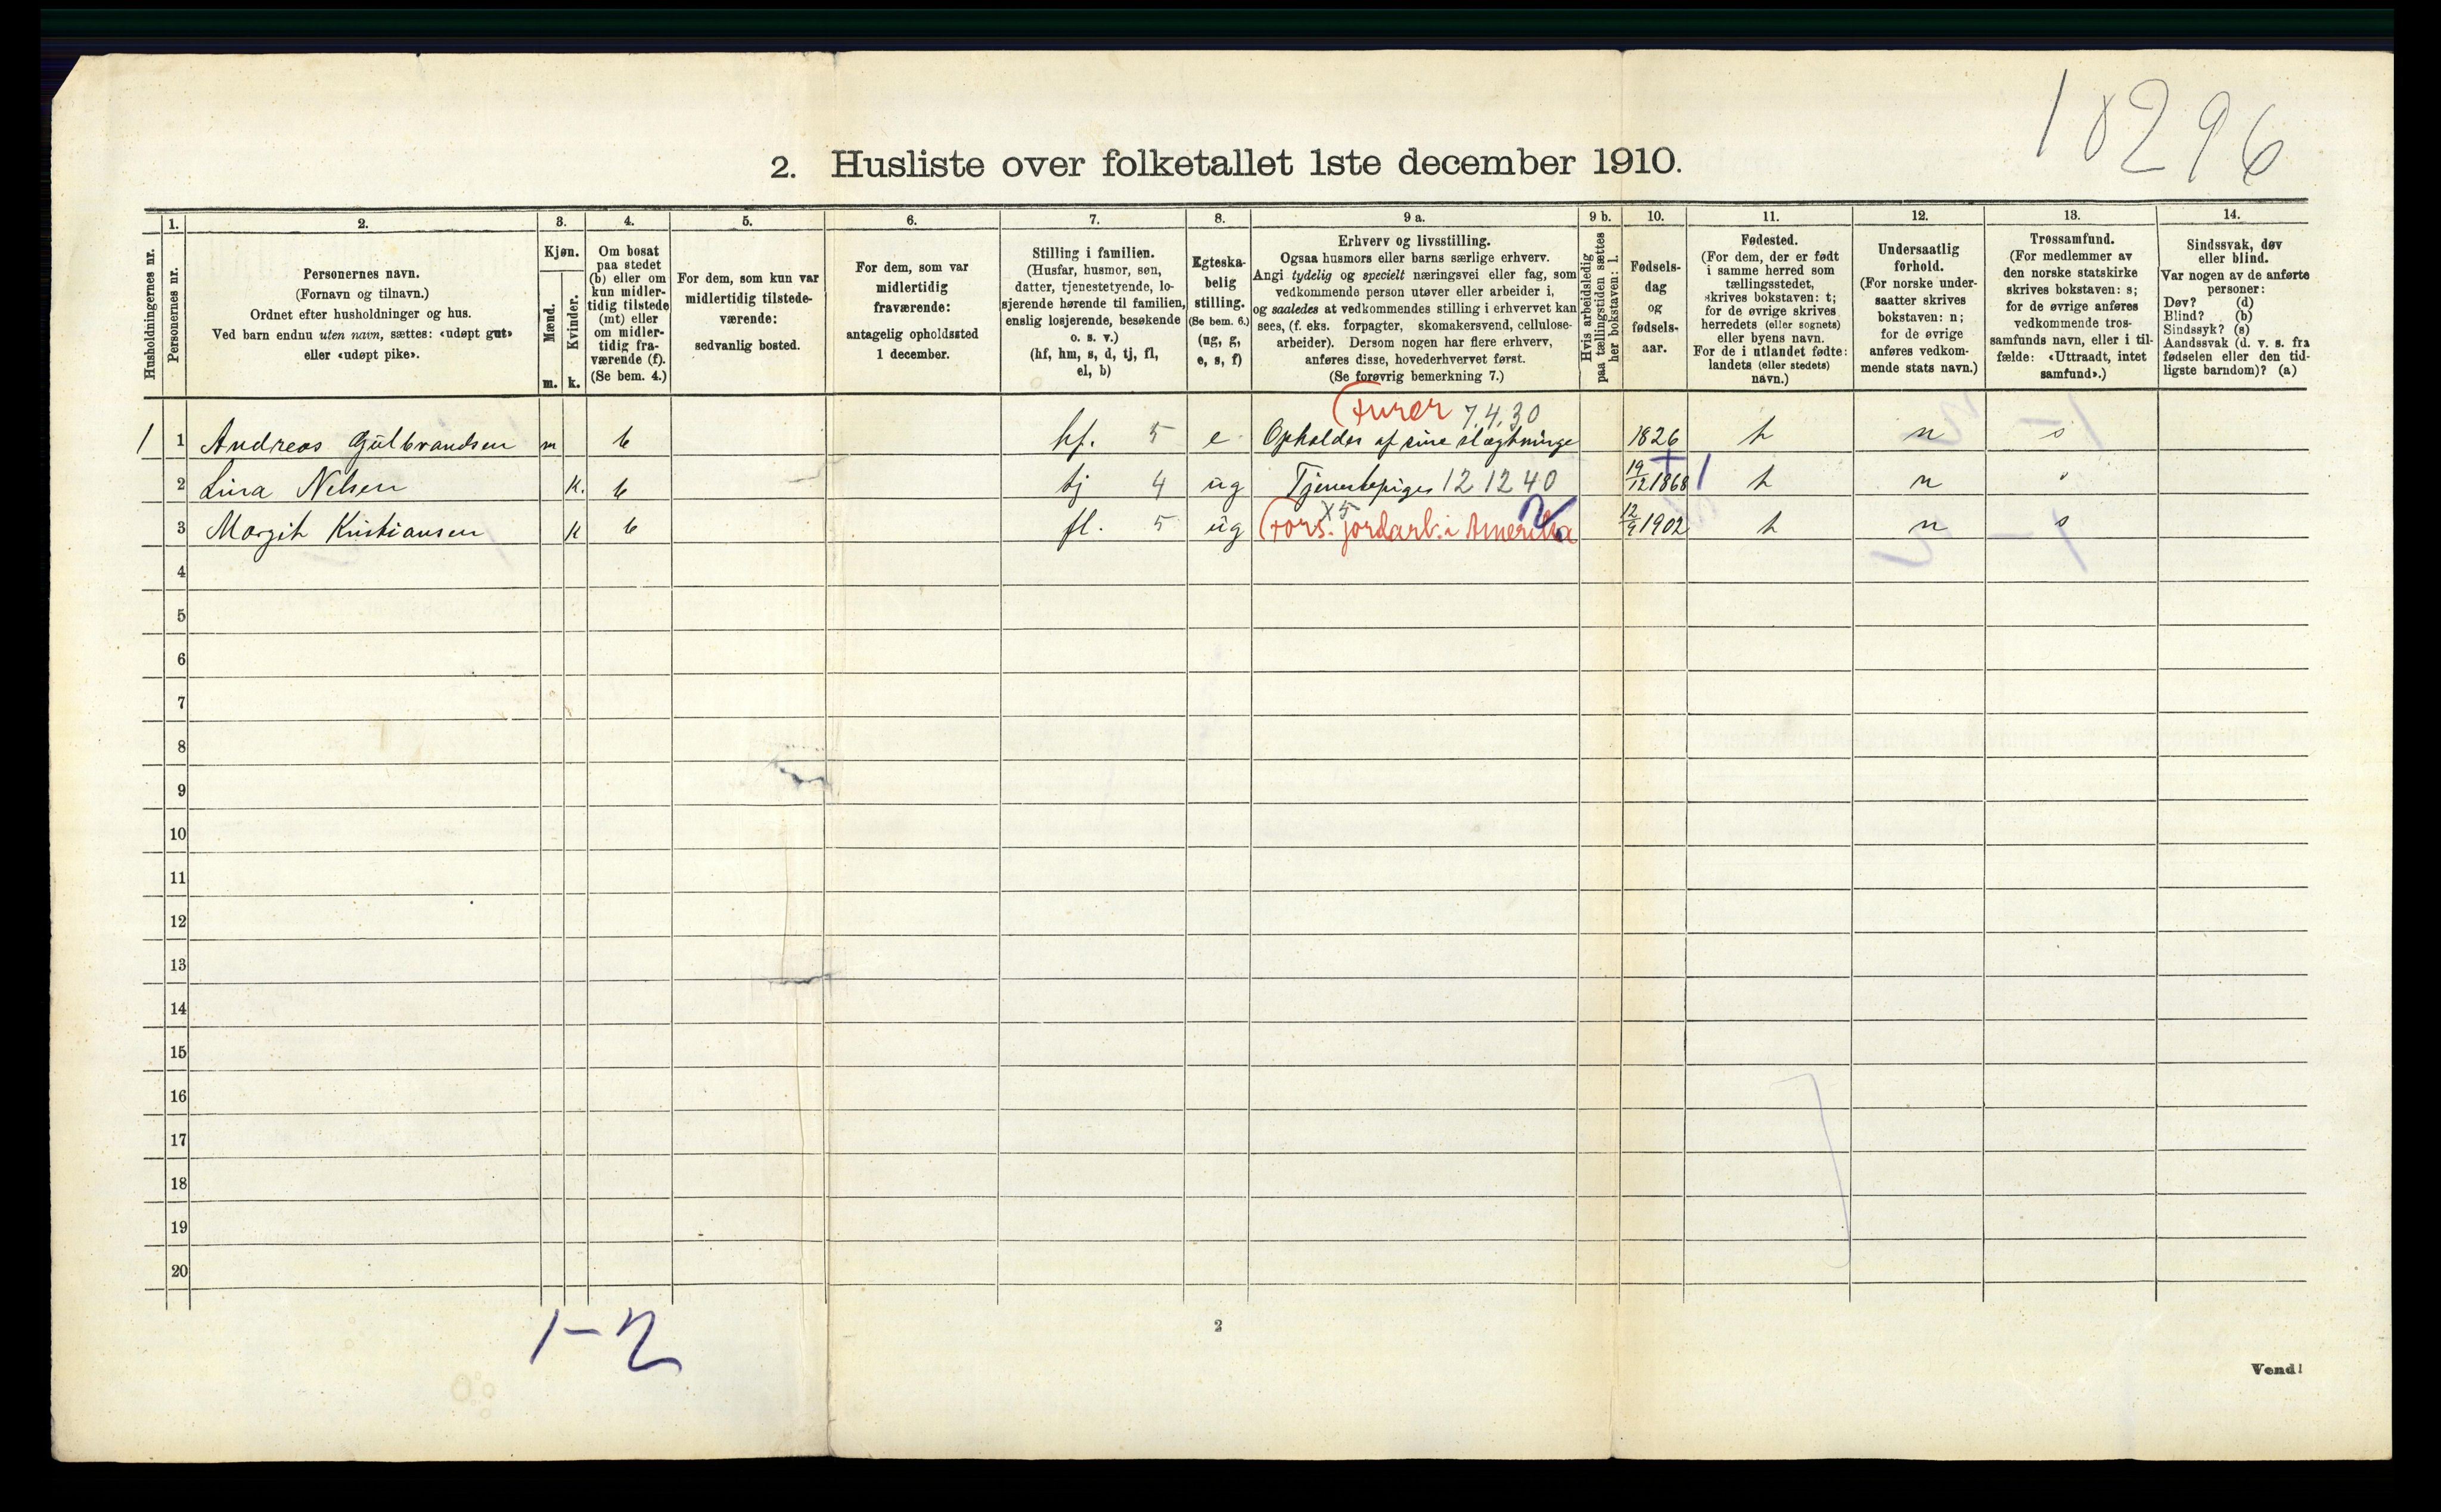 10296
2. Husliste over folketallet 1ste december 1910.
Husholdningernes nr.
1.
Personernes nr.
2.
Personernes navn.
(Fornavn og tilnavn.)
Ordnet efter husholdninger og hus.
Ved barn endnu uten navn, sættes: «udøpt gut»
eller «udøpt pike».
3.
Kjøn.
Mænd.
Kvinder.
m. k.
4.
Om bosat
paa stedet
(b) eller om
kun midler-
tidig tilstede
(mt) eller
om midler-
tidig fra-
værende (f).
(Se bem. 4.)
5.
For dem, som kun var
midlertidig tilstede-
værende:
sedvanlig bosted.
6.
For dem, som var
midlertidig
fraværende:
antagelig opholdssted
1 december.
7.
Stilling i familien.
(Husfar, husmor, søn,
datter, tjenestetyende, lo-
sjerende hørende til familien,
enslig losjerende, besøkende
o. s. v.)
(hf, hm, s, d, tj, fl,
el, b)
8.
Egteska-
belig
stilling.
(Se bem. 6.)
(ug, g,
e, s, f)
9 a.
Erhverv og livsstilling.
Ogsaa husmors eller barns særlige erhverv.
Angi tydelig og specielt næringsvei eller fag, som
vedkommende person utøver eller arbeider i,
og saaledes at vedkommendes stilling i erhvervet kan
sees, (f. eks. forpagter, skomakersvend, cellulose-
arbeider). Dersom nogen har flere erhverv,
anføres disse, hovederhvervet først.
(Se forøvrig bemerkning 7.)
9 b.
Hvis arbeidsledig
paa tællingstiden sættes
her bokstaven: l.
10.
Fødsels-
dag
og
fødsels-
aar.
11.
Fødested.
(For dem, der er født
i samme herred som
tællingsstedet,
skrives bokstaven: t;
for de øvrige skrives
herredets (eller sognets)
eller byens navn.
For de i utlandet fødte:
landets (eller stedets)
navn.)
12.
Undersaatlig
forhold.
(For norske under-
saatter skrives
bokstaven: n;
for de øvrige
anføres vedkom-
mende stats navn.)
13.
Trossamfund.
(For medlemmer av
den norske statskirke
skrives bokstaven: s;
for de øvrige anføres
vedkommende tros-
samfunds navn, eller i til-
fælde: «Uttraadt, intet
samfund».)
14.
Sindssvak, døv
eller blind.
Var nogen av de anførte
personer:
Døv? (d)
Blind? (b)
Sindssyk? (s)
Aandssvak (d. v. s. fra
fødselen eller den tid-
ligste barndom)? (a)
7.4.30
1 1 Andreas Gulbrandsen m b hf. 5 e Opholdes af sine slægtninge 1826 t n s
2 Lina Nelsen k. b tj 4 ug Tjenestepige 12 12 40 19/12 1868 1 t n
X5
3 Margit Kristiansen k b fl. 5 ug (Fors. jordarb. i Amerika 12/9 1902 t n s
4
5
6
7
8
9
10
11
12
13
14
15
16
17
18
19
20
1-2
2
Vend!